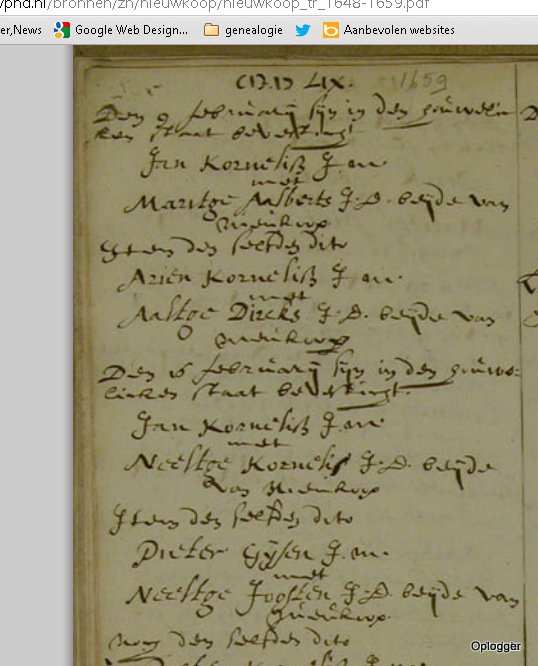 vpnd.nl/bronnen/zh/nieuwkoop/nieuwkoop_tr_1648-1659.pdf
er,News Google Web Design... genealogie Aanbevolen websites
LIX. 1659
Den 9 februarij sijn in den houwelic
ken staat bevestingt
Jan Kornelisz J. m.
met
Maritge Aalberts J. D. beijde van
Nieukoop
Item den selfden dito
Arien Kornelisz J. m.
met
Aaltge Dircks J. D. beijde van
Nieukoop
Den 16 februarij sijn in den houwe-
licken staat bevestingt.
Jan Kornelisz J. m.
met
Neeltge Kornelis J. D. beijde
van Nieukoop
Item den selfden dito
Pieter Gijsen J. m.
met
Neeltge Joosten J. D. beijde van
Nieukoop.
Noch den selfden dito
Oplogger